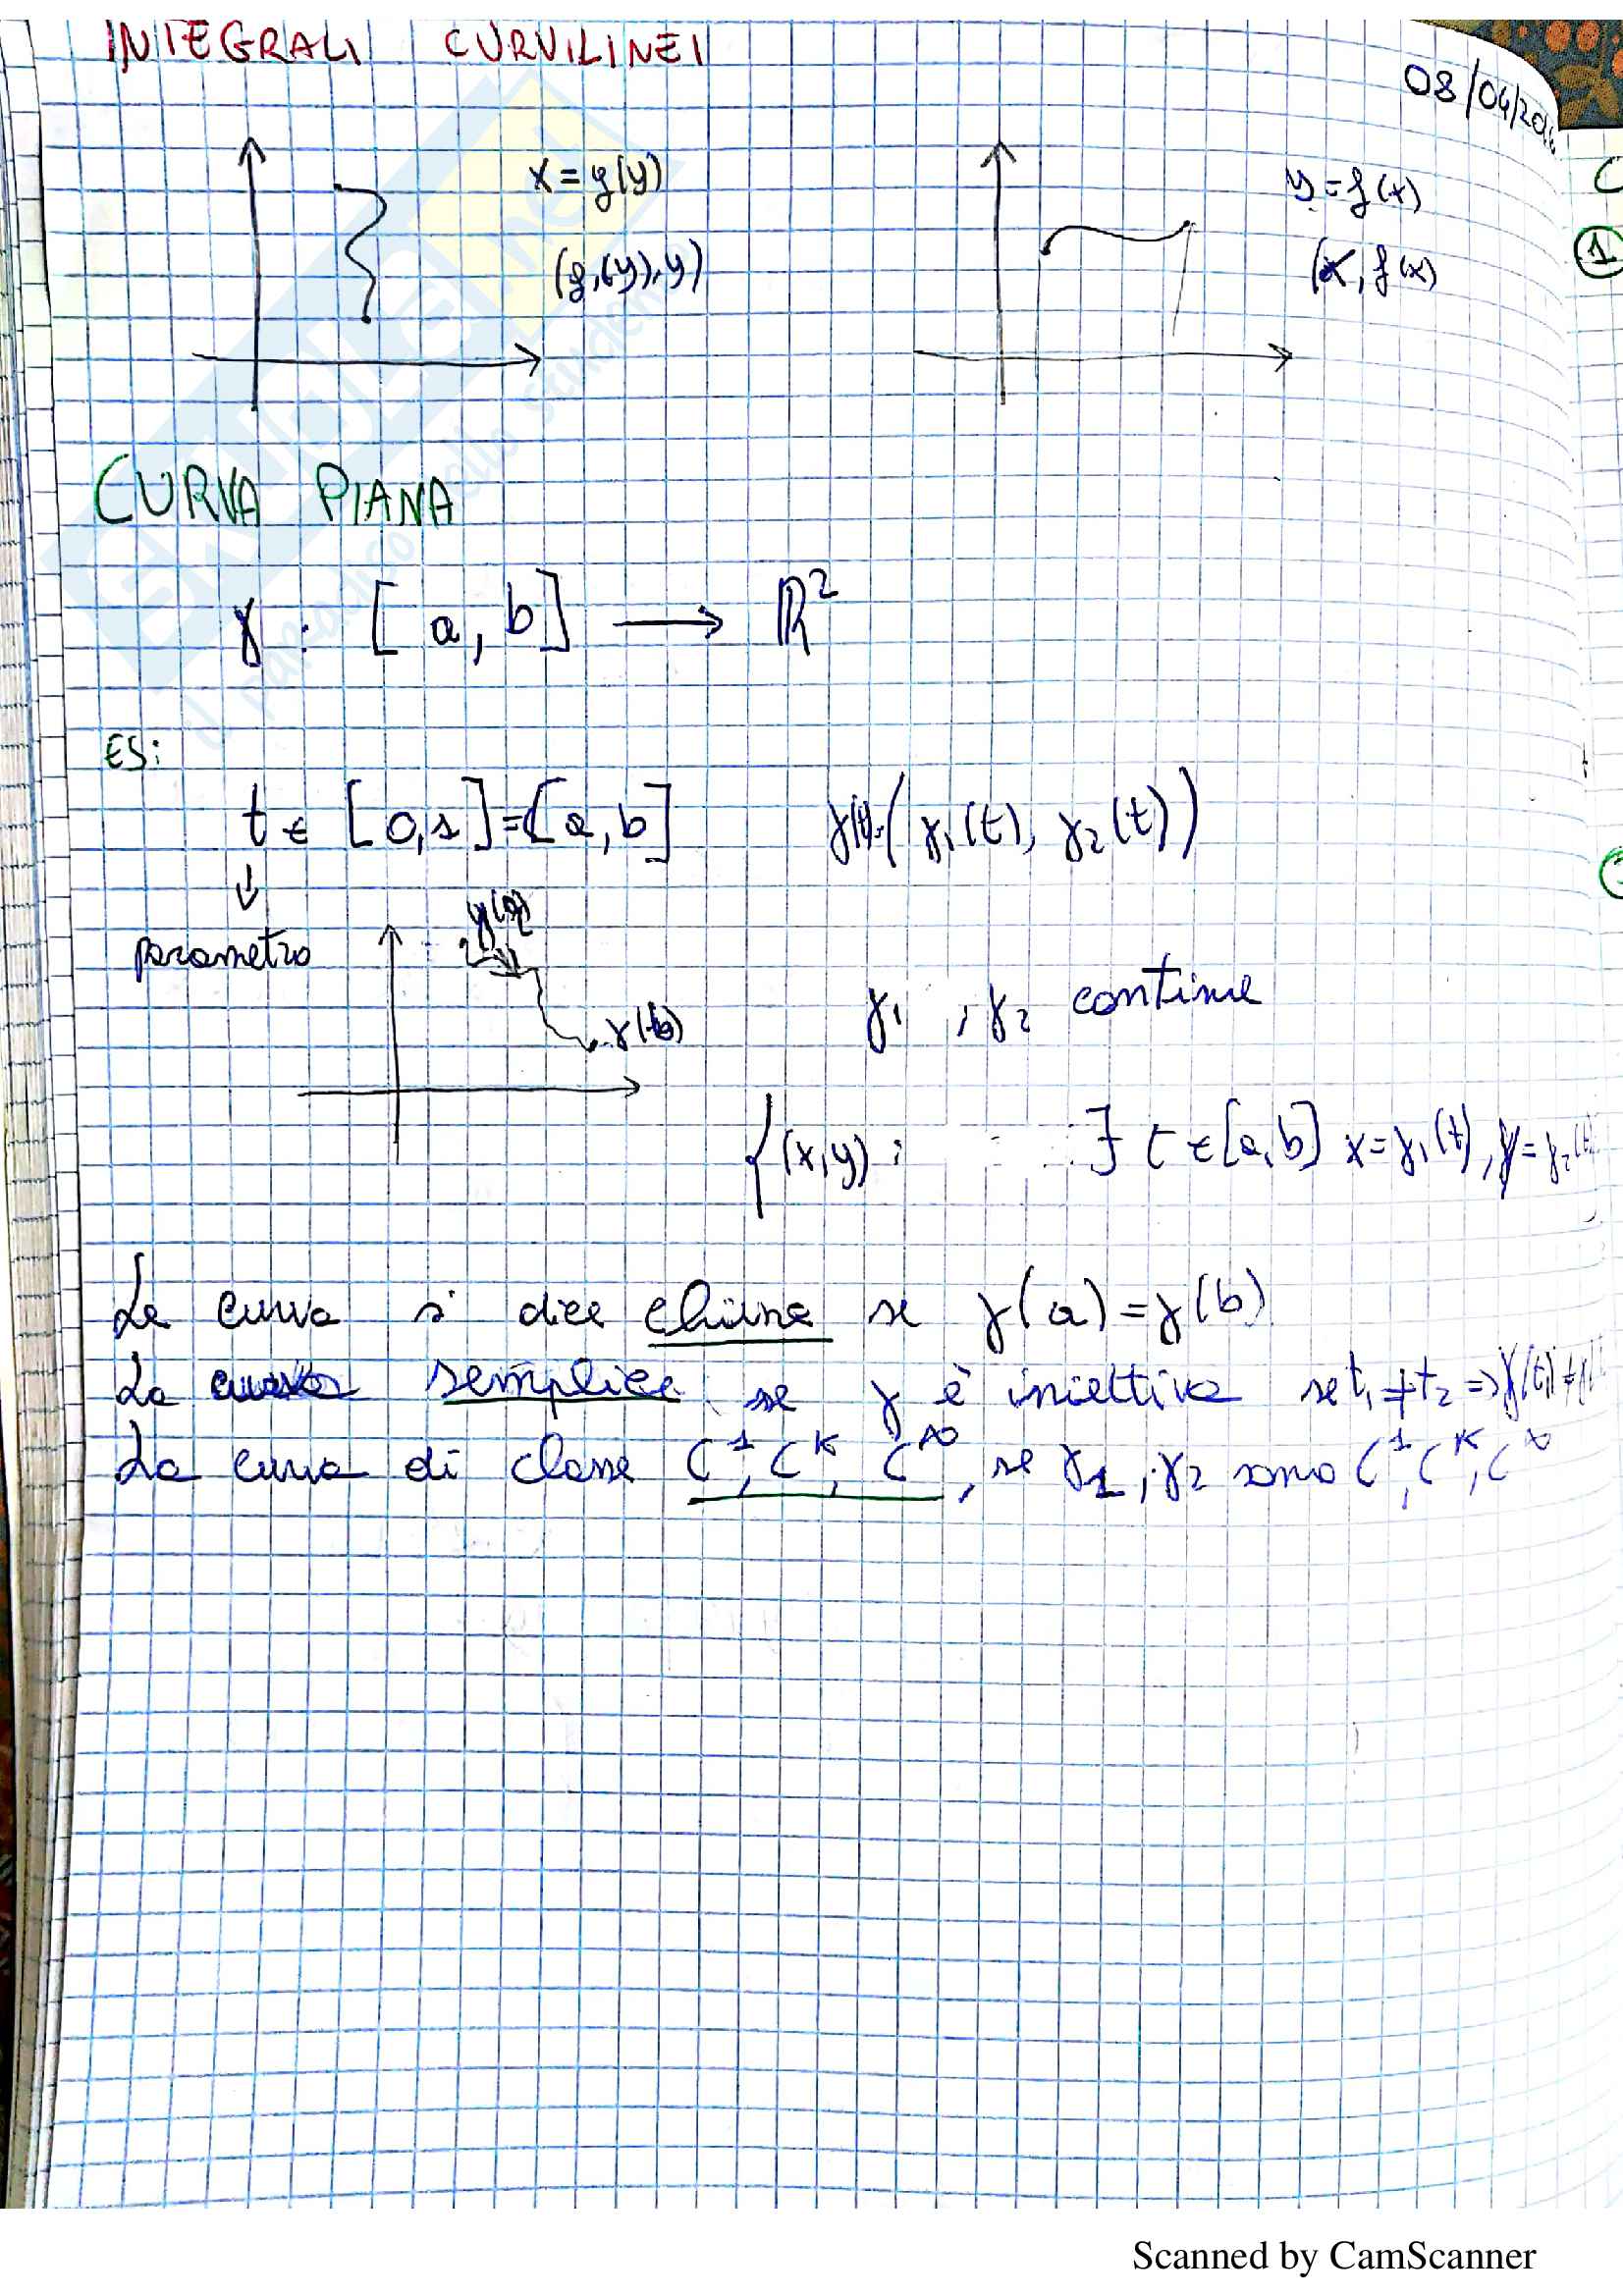 INTEGRALI CURVILINEI
08/04/2016
x = g(y)
(g(y), y)
y = f(x)
(x, f(x)
1
CURVA PIANA
γ : [a, b] → R²
ES:
t ∈ [0,1] = [a, b] γ(t) = (γ₁(t), γ₂(t))
↓
parametro
γ(a)
γ(b)
γ₁ , γ₂ continue
{(x,y) : ∃ t ∈ [a,b] x = γ₁(t), y = γ₂(t)
La curva si dice chiusa se γ(a) = γ(b)
La curva semplice se γ è iniettiva se t₁ ≠ t₂ => γ(t₁) ≠
La curva di classe C¹, Cᴷ, C^∞, se γ₁, γ₂ sono C¹, Cᴷ, C^∞
Scanned by CamScanner